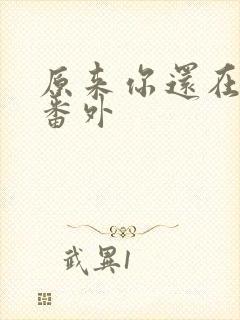 原来你還在
番外
武異1